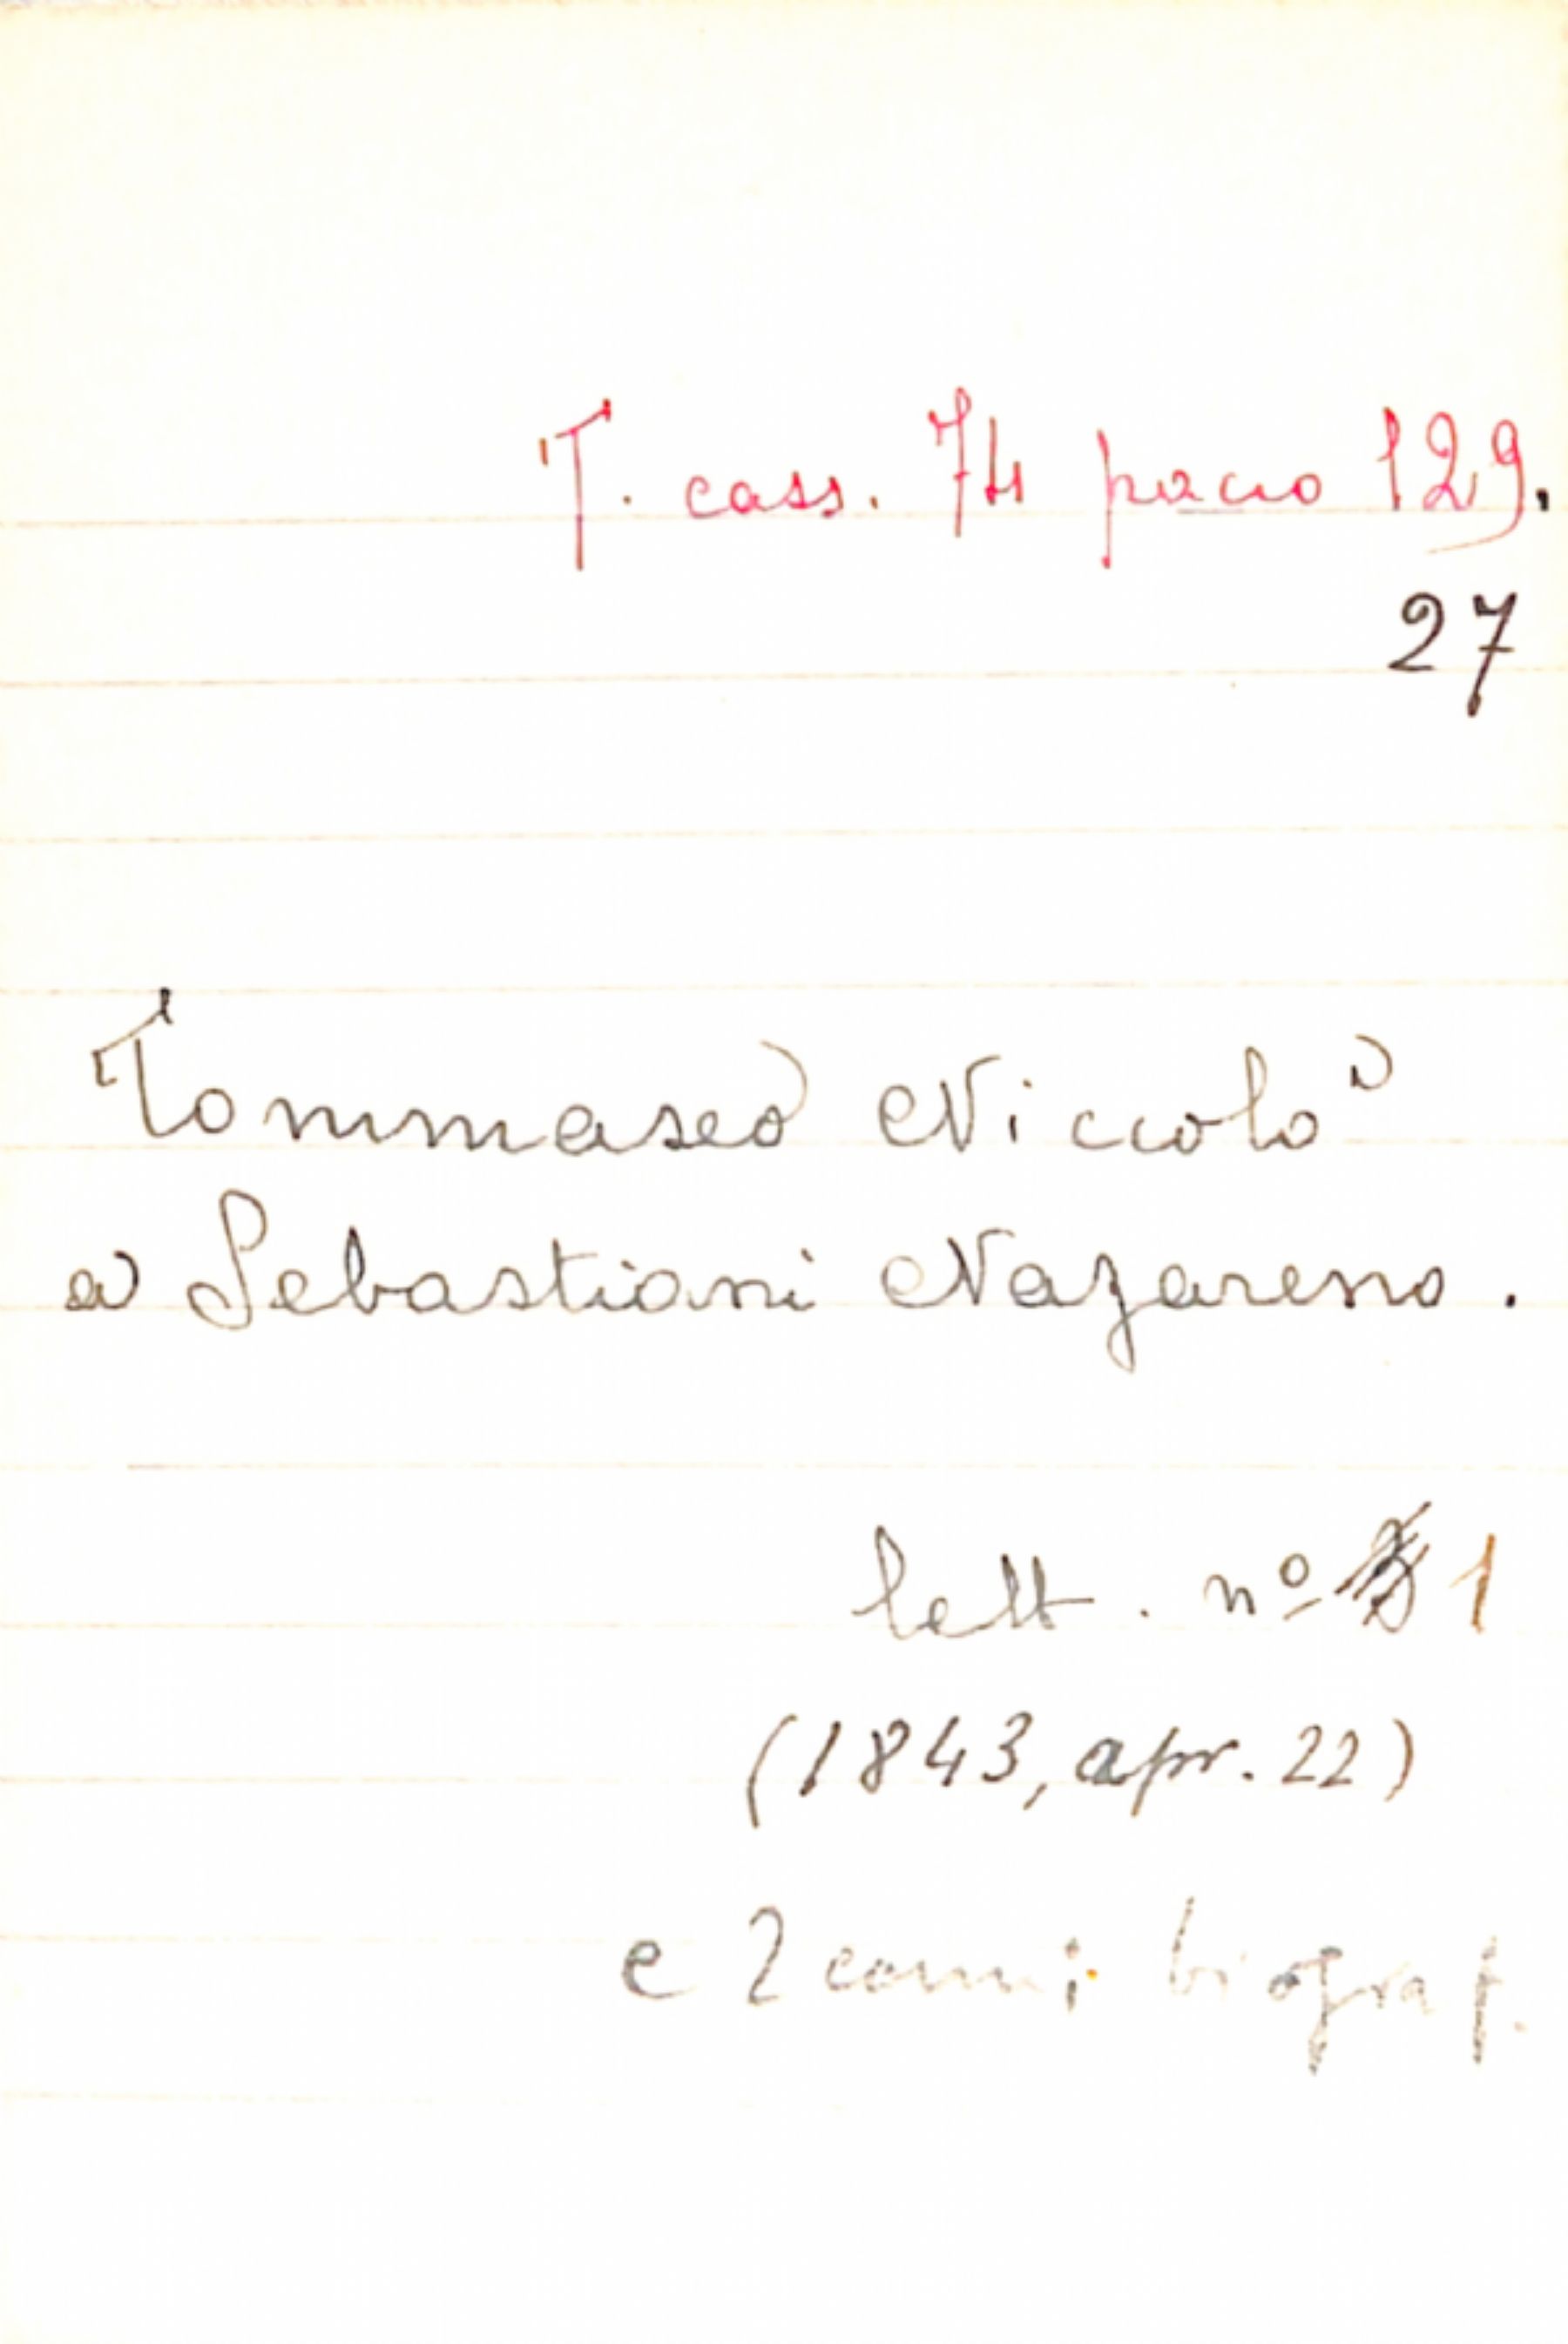 T. cass. 74 pacco 129.
27
Tommaseo Niccolò
a Sebastiani Nazareno.
lett. nº 1
(1843, apr. 22)
e 2 cenni biograf.